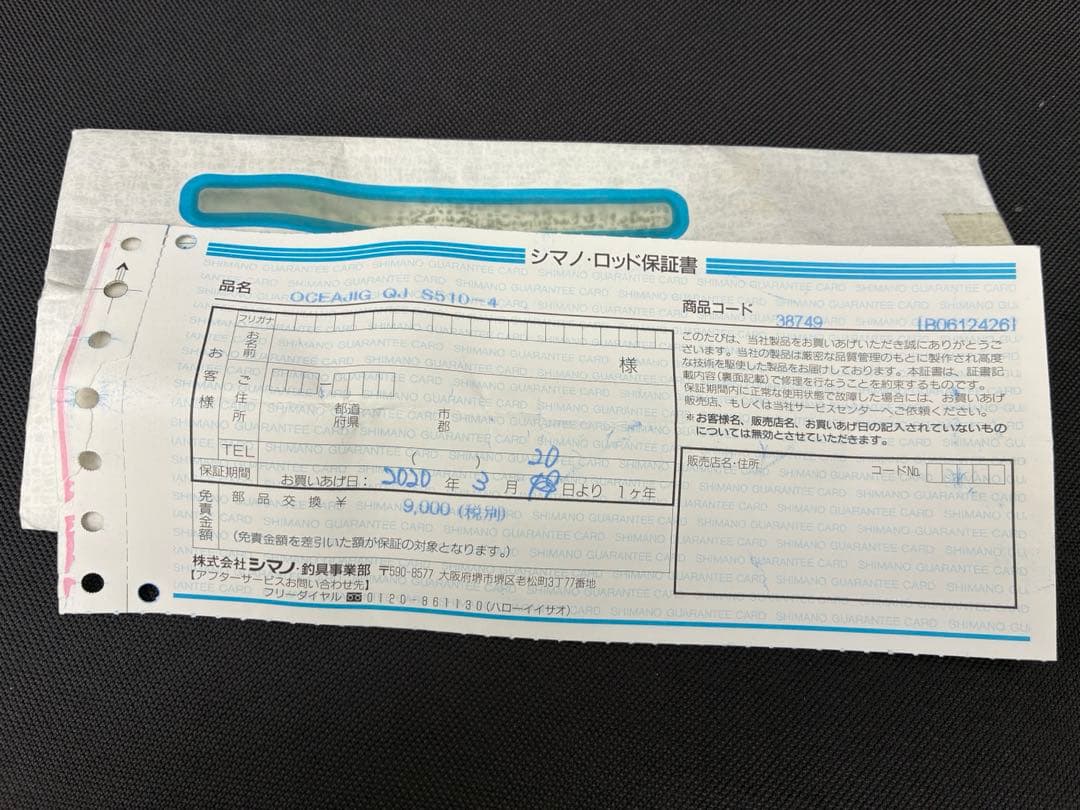 シマノ・ロッド保証書
品名 OCEAJIG QJ S510-4
商品コード 38749 [B0612426]
フリガナ
お名前 様
お客様
ご住所
都道府県 市郡
TEL ( )
保証期間 お買いあげ日: 2020 年 3 月 20 日より 1ヶ年
免責金額 部品交換 ¥ 9,000 (税別)
(免責金額を差引いた額が保証の対象となります。)
株式会社シマノ・釣具事業部 〒590-8577 大阪府堺市堺区老松町3丁77番地
【アフターサービスお問い合わせ先】
フリーダイヤル 0120-861130(ハローイイサオ)
このたびは、当社製品をお買いあげいただき誠にありがとうご
ざいます。当社の製品は厳密な品質管理のもとに製作され高度
な技術を駆使した製品をお届けしております。本証書は、証書記
載内容(裏面記載)で修理を行なうことを約束するものです。
保証期間内に正常な使用状態で故障した場合には、お買いあげ
販売店、もしくは当社サービスセンターへご依頼ください。
※お客様名、販売店名、お買いあげ日の記入されていないもの
については無効とさせていただきます。
販売店名・住所 コードNo.
SHIMANO GUARANTEE CARD